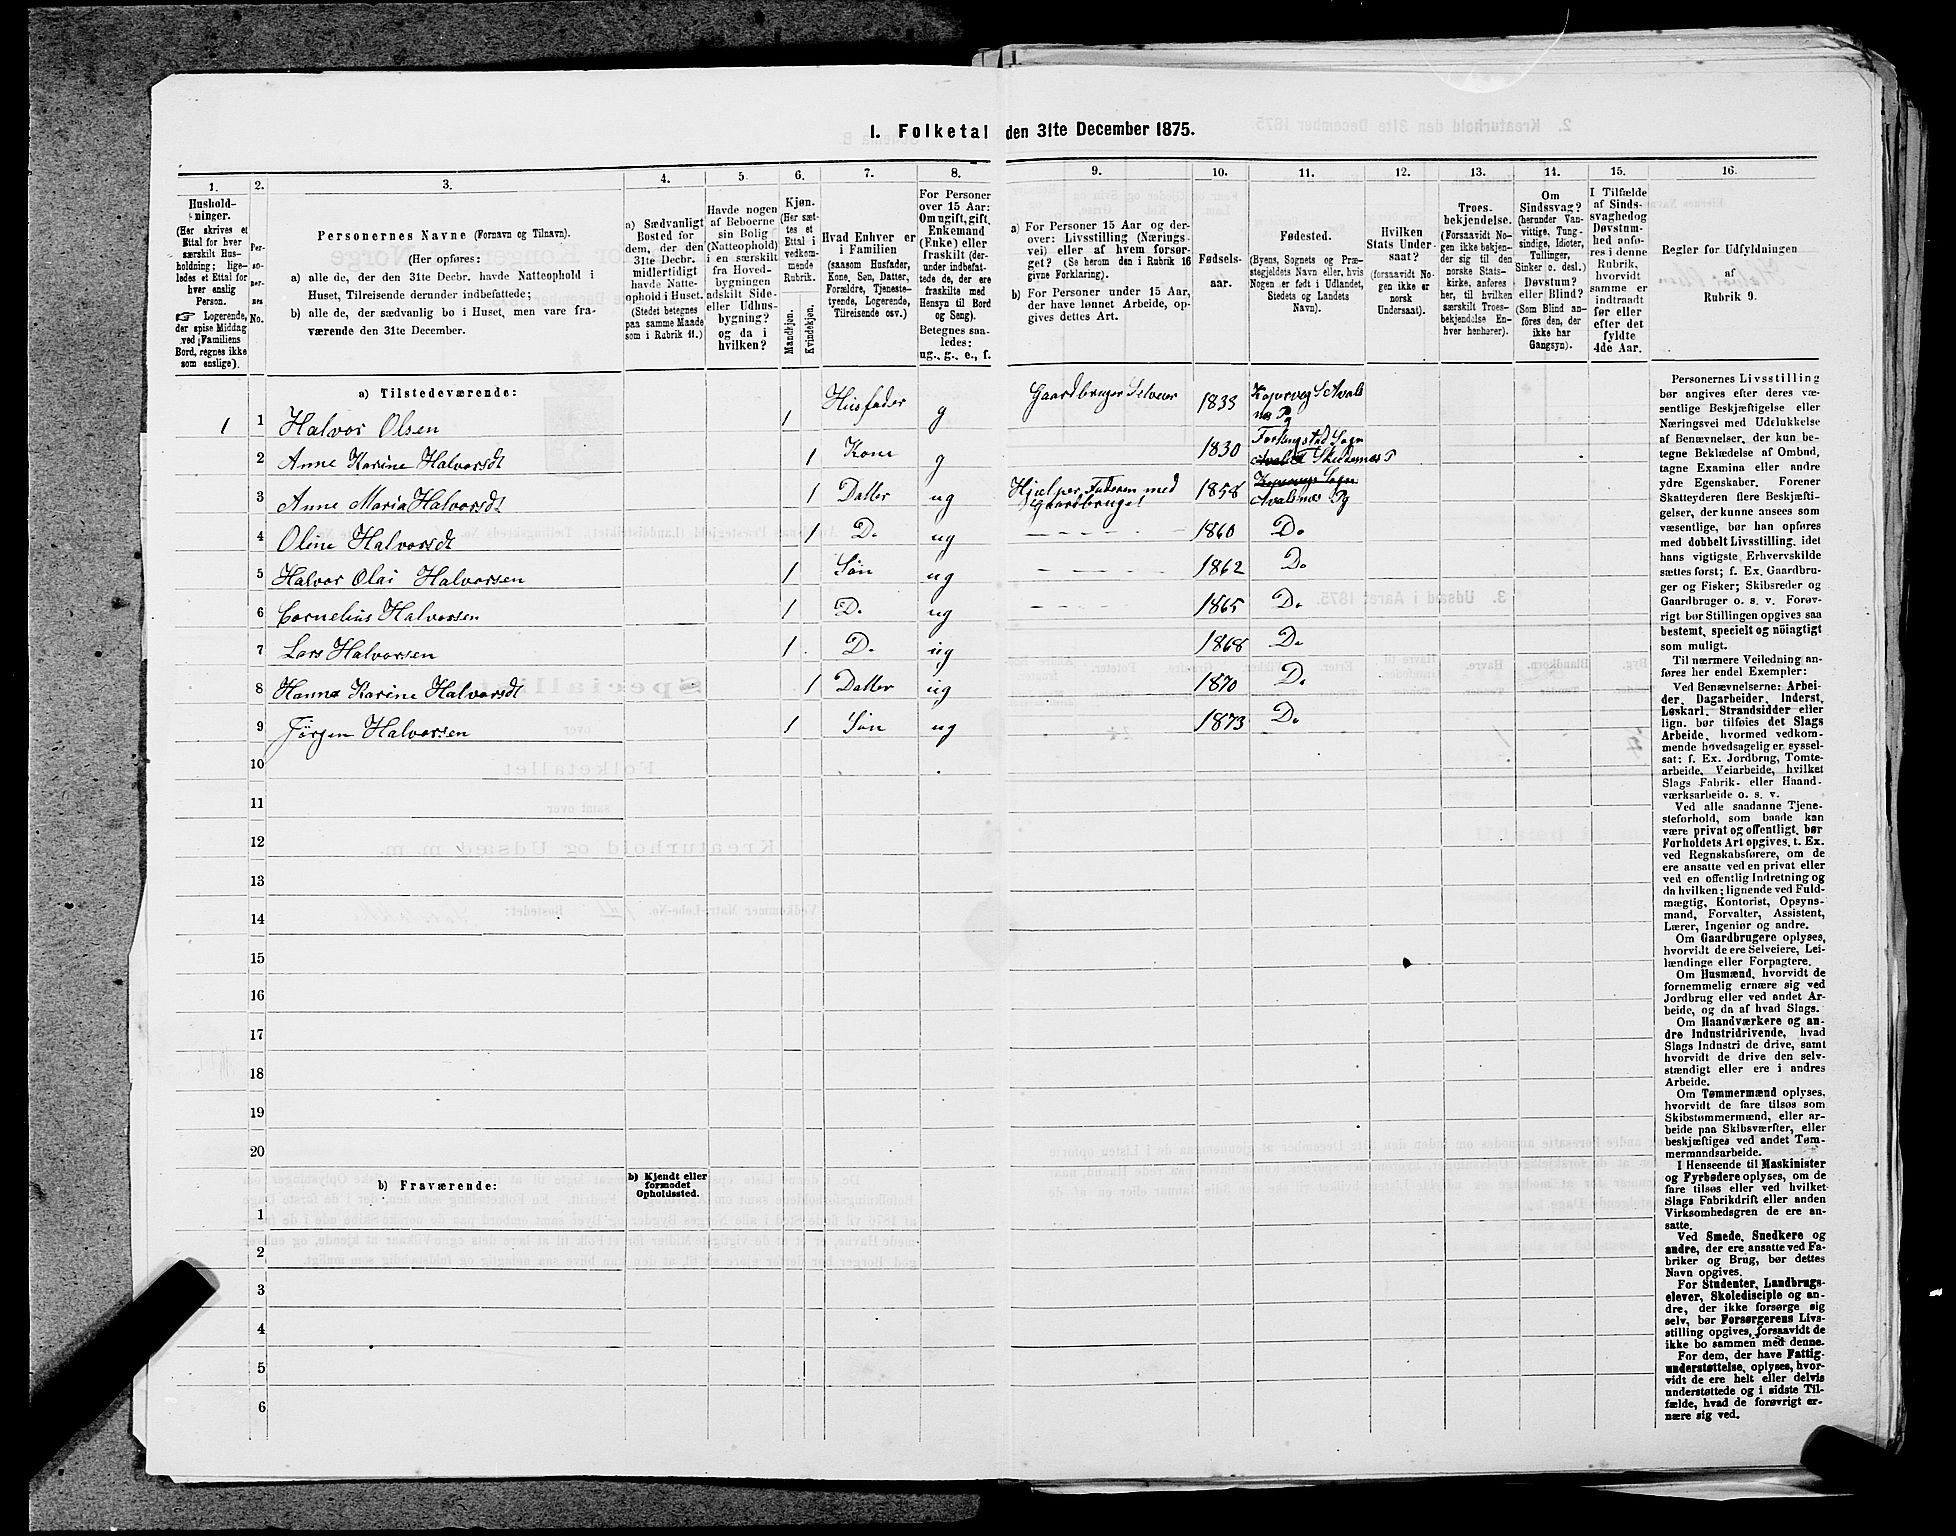 1. Folketal den 31te December 1875.
1. 2. 3. 4. 5. 6. 7. 8. 9. 10. 11. 12. 13. 14. 15. 16.
Hushold-
ninger.
(Her skrives et
Ettal for hver
særskilt Hus-
holdning; lige-
ledes et Ettal for
hver enslig
Person.
☞ Logerende,
der spise Middag
ved Familiens
Bord, regnes ikke
som enslige).
Per-
so-
per-
nes
No.
Personernes Navne (Fornavn og Tilnavn).
(Her opføres:
a) alle de, der den 31te Decbr. havde Natteophold i
Huset, Tilreisende derunder indbefattede;
b) alle de, der sædvanlig bo i Huset, men vare fra-
værende den 31te December.
a) Sædvanligt
Bosted for
dem, der den
31te Decbr.
midlertidigt
havde Natte-
ophold i Huset.
(Stedet betegnes
paa samme Maade
som i Rubrik 11.)
Havde nogen
af Beboerne
sin Bolig
(Natteophold)
i en særskilt
fra Hoved-
bygningen
adskilt Side-
eller Udhus-
bygning?
og da i
hvilken?
Kjøn.
(Her sæt-
tes et
Ettal i
vedkom-
mende
Rubrik.
Mandkjøn.
Kvindekjøn.
Hvad Enhver er
i Familien
(saasom Husfader,
Kone, Søn, Datter,
Forældre, Tjeneste-
tyende, Logerende,
Tilreisende osv.)
For Personer
over 15 Aar:
Om ugift, gift,
Enkemand
(Enke) eller
fraskilt (der-
under indbefat-
tede de, der ere
fraskilte med
Hensyn til Bord
og Seng).
Betegnes saa-
ledes:
ug., g., e., f.
a) For Personer 15 Aar og der-
over: Livsstilling (Nærings-
vei) eller af hvem forsør-
get? (Se herom den i Rubrik 16
givne Forklaring).
b) For Personer under 15 Aar,
der have lønnet Arbeide, op-
gives dettes Art.
Fødsels-
aar.
Fødested.
(Byens, Sognets og Præ-
stegjeldets Navn eller, hvis
Nogen er født i Udlandet,
Stedets og Landets
Navn).
Hvilken
Stats Under-
saat?
(forsaavidt No-
gen ikke er
norsk
Undersaat).
Troes-
bekjendelse.
(Forsaavidt No-
gen ikke bekjen-
der sig til den
norske Stats-
kirke, anføres
her, til hvilken
særskilt Troes-
bekjendelse En-
hver henhører).
Om
Sindssvag?
(herunder Van-
vittige, Tung-
sindige, Idioter,
Tullinger,
Sinker o. desl.)
Døvstum?
eller Blind?
(Som Blind an-
føres den, der
ikke har
Gangsyn).
I Tilfælde
af Sinds-
svaghed og
Døvstum-
hed anfø-
res i denne
Rubrik,
hvorvidt
samme er
indtraadt
før eller
efter det
fyldte
4de Aar.
Regler for Udfyldningen
af
Rubrik 9.
a) Tilstedeværende:
1 1 Halvor Olsen 1 Husfader g Gaardbruger Selveier 1833
2 Anne Karine Halvorsdt 1 Kone g 1830
3 Anne Maria Halvorsdt 1 Datter ug Hjælper Faderen med Gaardbruget 1858 Avalsnes Pg
4 Oline Halvorsdt 1 Do ug – – – – – 1860 Do
5 Halvor Olai Halvorsen 1 Søn ug 1862 Do
6 Cornelius Halvorsen 1 Do ug – – – – – 1865 Do
7 Lars Halvorsen 1 Do ug 1868 Do
8 Hanna Karine Halvorsdt 1 Datter ug 1870 Do
9 Jørgen Halvorsen 1 Søn ug 1873 Do
10
11
12
13
14
15
16
17
18
19
20
b) Fraværende:
b) Kjendt eller
formodet
Opholdssted.
1
2
3
4
5
6
Personernes Livsstilling
bør angives efter deres væ-
sentlige Beskjæftigelse eller
Næringsvei med Udelukkelse
af Benævnelser, der kun be-
tegne Beklædelse af Ombud,
tagne Examina eller andre
ydre Egenskaber. Forener
Skatteyderen flere Beskjæfti-
gelser, der kunne ansees som
væsentlige, bør han opføres
med dobbelt Livsstilling, idet
hans vigtigste Erhvervskilde
sættes først; f. Ex. Gaardbru-
ger og Fisker; Skibsreder og
Gaardbruger o. s. v. Forøv-
rigt bør Stillingen opgives saa
bestemt, specielt og nöiagtigt
som muligt.
Til nærmere Veiledning an-
føres her endel Exempler:
Ved Benævnelserne: Arbei-
der, Dagarbeider, Inderst,
Løskarl, Strandsidder eller
lign. bør tilføies det Slags
Arbeide, hvormed vedkom-
mende hovedsagelig er syssel-
sat; f. Ex. Jordbrug, Tomte-
arbeide, Veiarbeide, hvilket
Slags Fabrik- eller Haand-
værksarbeide o. s. v.
Ved alle saadanne Tjene-
steforhold, som baade kan
være privat og offentligt, bør
Forholdets Art opgives, t. Ex.
ved Regnskabsførere, om de
ere ansatte ved en privat eller
ved en offentlig Indretning og
da hvilken; lignende ved Fuld-
mægtig, Kontorist, Opsyns-
mand, Forvalter, Assistent,
Lærer, Ingeniør og andre.
Om Gaardbrugere oplyses,
hvorvidt de ere Selveiere, Lei-
lændinge eller Forpagtere.
Om Husmænd, hvorvidt de
fornemmelig ernære sig ved
Jordbrug eller ved andet Ar-
beide, og da af hvad Slags.
Om Haandværkere og an-
dre Industridrivende, hvad
Slags Industri de drive, samt
hvorvidt de drive den selv-
stændigt eller ere i andres
Arbeide.
Om Tømmermænd oplyses,
hvorvidt de fare tilsøs som
Skibstømmermænd, eller ar-
beide paa Skibsværfter, eller
beskjæftiges ved andet Tøm-
mermandsarbeide.
I Henseende til Maskinister
og Fyrbødere oplyses, om de
fare tilsøs eller ved hvilket
Slags Fabrikdrift eller anden
Virksomhedsgren de ere an-
satte.
Ved Smede, Snedkere og
andre, der ere ansatte ved Fa-
briker og Brug, bør dettes
Navn opgives.
For Studenter, Landbrugs-
elever, Skoledisciple og an-
dre, der ikke forsørge sig
selv, bør Forsørgerens Livs-
stilling opgives, forsaavidt de
ikke bo sammen med denne.
For dem, der have Fattig-
understøttelse, oplyses, hvor-
vidt de ere helt eller delvis
understøttede og i sidste Til-
fælde, hvad de forøvrigt er-
nære sig ved.